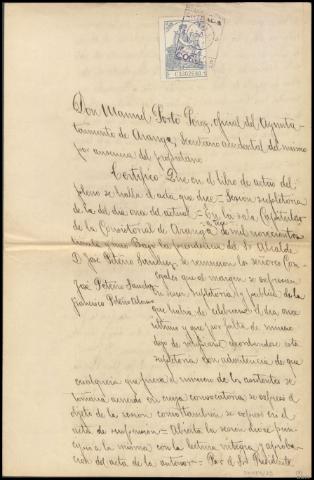 Don Manuel Porto Perez, oficial del Ayunta-
tamiento de Aranga, Secretario accidental del mismo
por ausencia del propietario
Certifico: Que en el libro de actas del
pleno se halla el acta que dice = Sesion supletoria
de la del dia once del actual = En la sala Capitular
de la Consistorial de Aranga a de mil novecientos
treinta y uno Bajo la presidencia del Sr Alcalde
D. Jose Peteiro Sanchez se reunieron los señores Con-
cejales que al margen se expresan
Jose Peteiro Sanchez
en sesion supletoria y publica de la
Francisco Peteiro
que habia de celebrarse el dia once
ultimo y que por falta de nume-
ro de señores acordandose esta
supletoria con advertencia de que
cualquiera que fuera el numero de los asistentes se
tomaria acuerdo en cuya convocatoria se expresó el
objeto de la sesion como tambien se expresó en el
acta de suspension = Abierta la sesion diose prin-
cipio a la misma con la lectura integra y aproba-
cion del acta de la anterior = Por el Sr Presidente